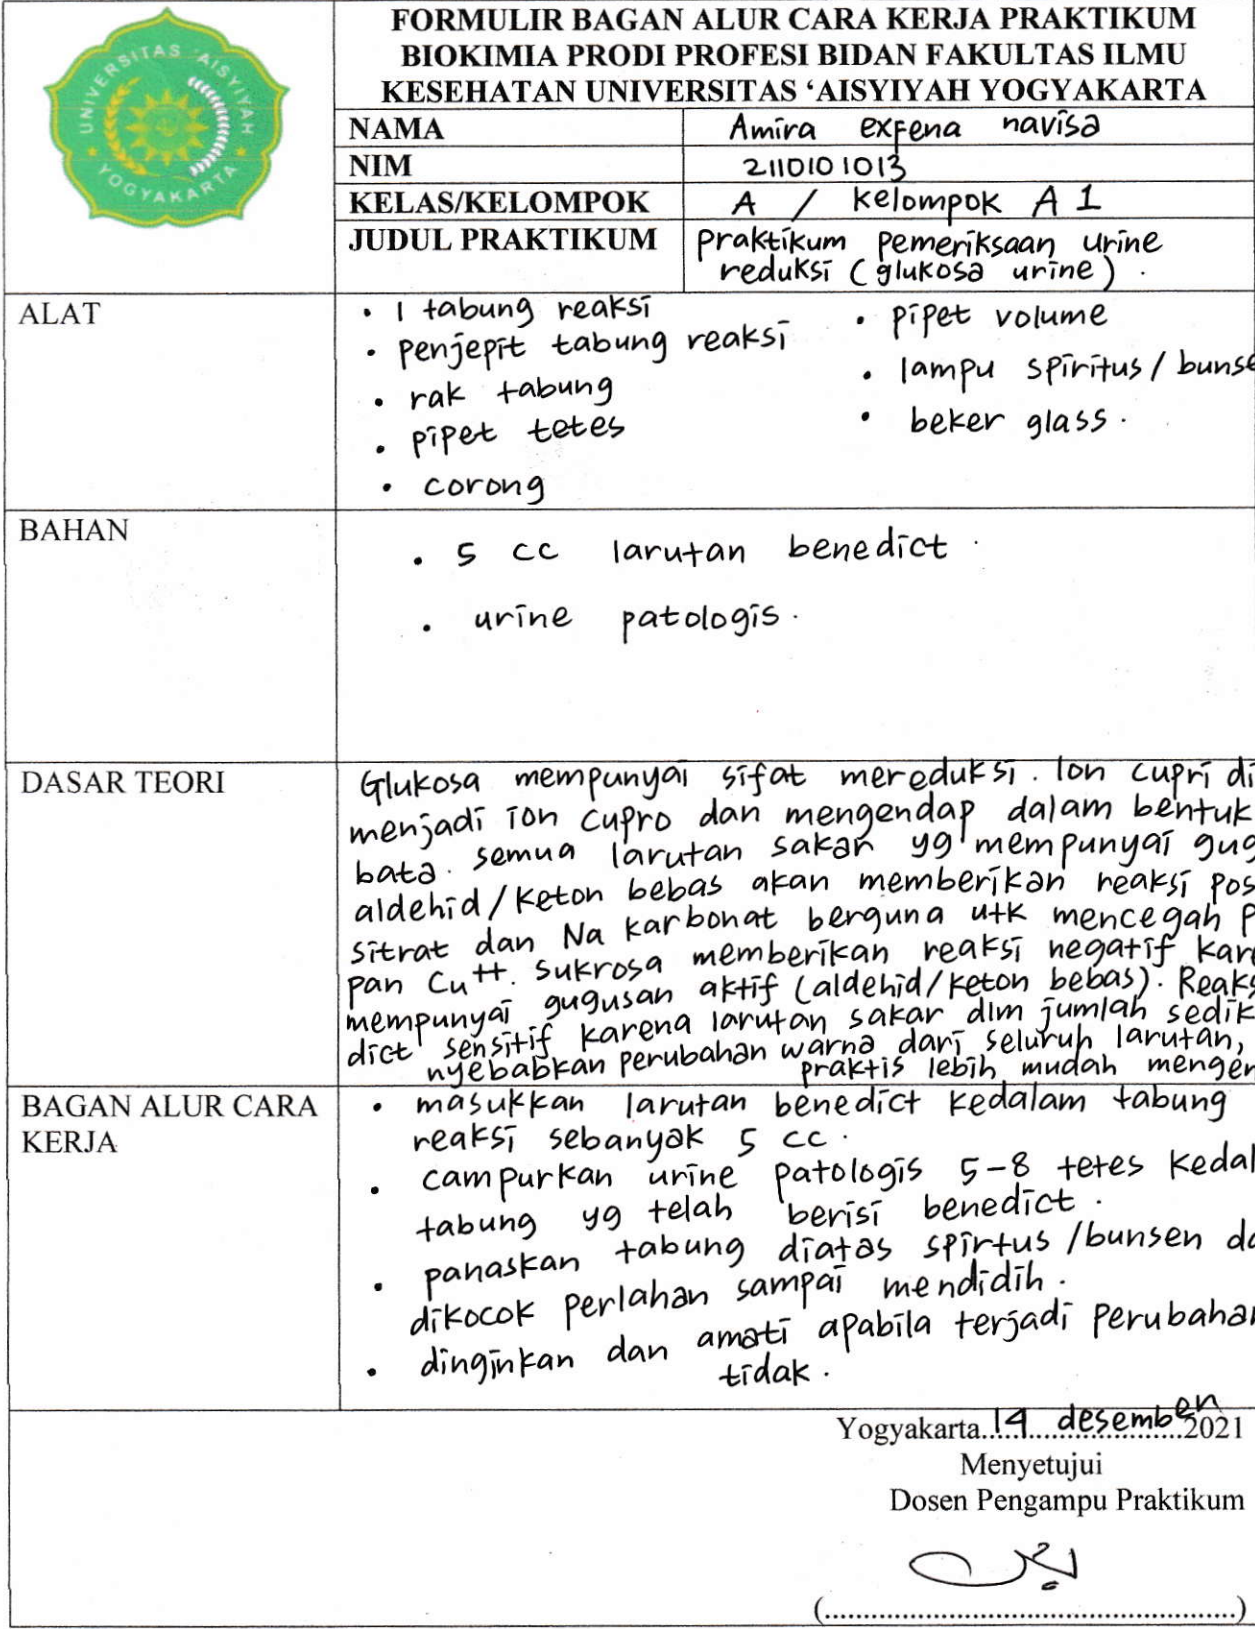 UNIVERSITAS 'AISYIYAH
YOGYAKARTA
FORMULIR BAGAN ALUR CARA KERJA PRAKTIKUM
BIOKIMIA PRODI PROFESI BIDAN FAKULTAS ILMU
KESEHATAN UNIVERSITAS ‘AISYIYAH YOGYAKARTA
NAMA Amira exfena navisa
NIM 2110101013
KELAS/KELOMPOK A / kelompok A 1
JUDUL PRAKTIKUM praktikum pemeriksaan urine
reduksi (glukosa urine).
ALAT
• 1 tabung reaksi
• penjepit tabung reaksi
• rak tabung
• pipet tetes
• corong
• pipet volume
• lampu spiritus / bunse
• beker glass.
BAHAN
• 5 cc larutan benedict.
• urine patologis.
DASAR TEORI
Glukosa mempunyai sifat mereduksi. Ion cupri di
menjadi ion cupro dan mengendap dalam bentuk
bata. semua larutan sakar yg mempunyai gug
aldehid/keton bebas akan memberikan reaksi pos
sitrat dan Na karbonat berguna utk mencegah p
pan Cu++. sukrosa memberikan reaksi negatif kar
mempunyai gugusan aktif (aldehid/keton bebas). Reaks
dict sensitif karena larutan sakar dlm jumlah sedik
nyebabkan perubahan warna dari seluruh larutan,
praktis lebih mudah mengen
BAGAN ALUR CARA
KERJA
• masukkan larutan benedict kedalam tabung
reaksi sebanyak 5 cc.
• campurkan urine patologis 5-8 tetes kedal
tabung yg telah berisi benedict.
• panaskan tabung diatas spirtus /bunsen da
dikocok perlahan sampai mendidih.
• dinginkan dan amati apabila terjadi perubahan
tidak.
Yogyakarta..14 desember 2021
Menyetujui
Dosen Pengampu Praktikum
(..................................................)